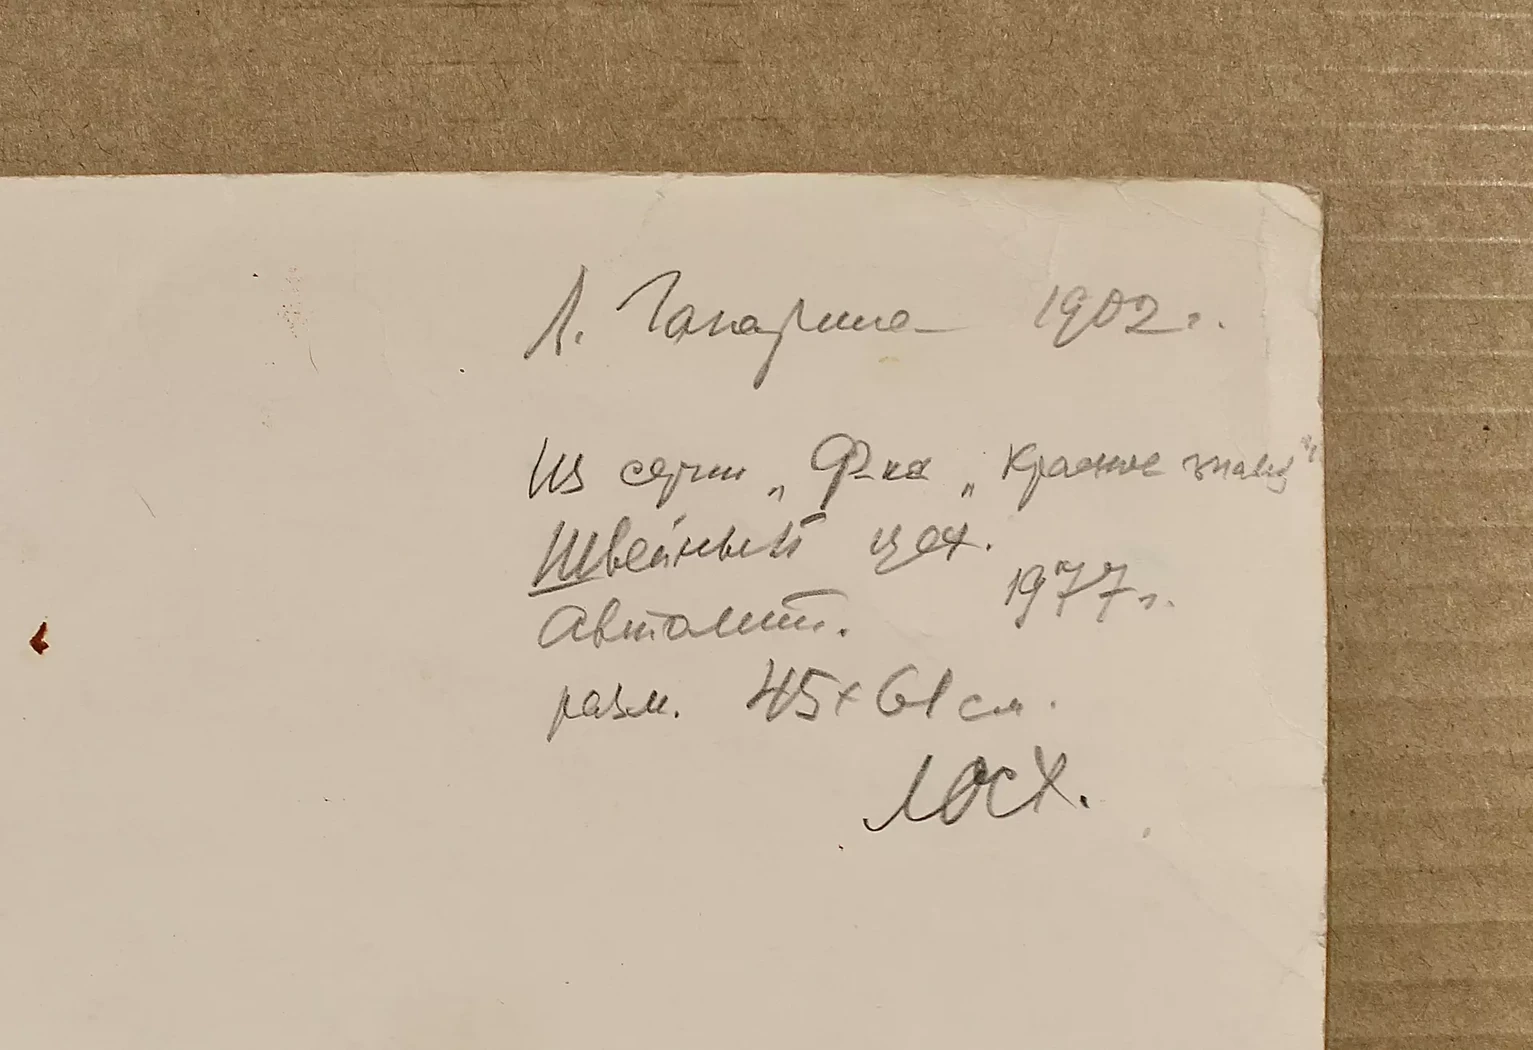 Л. Гагарина 1902 г.
Из серии „Ф-ка „Красное знамя“
Швейный цех.
Автолит. 1977 г.
разм. 45 х 61 см.
ЛОСХ.